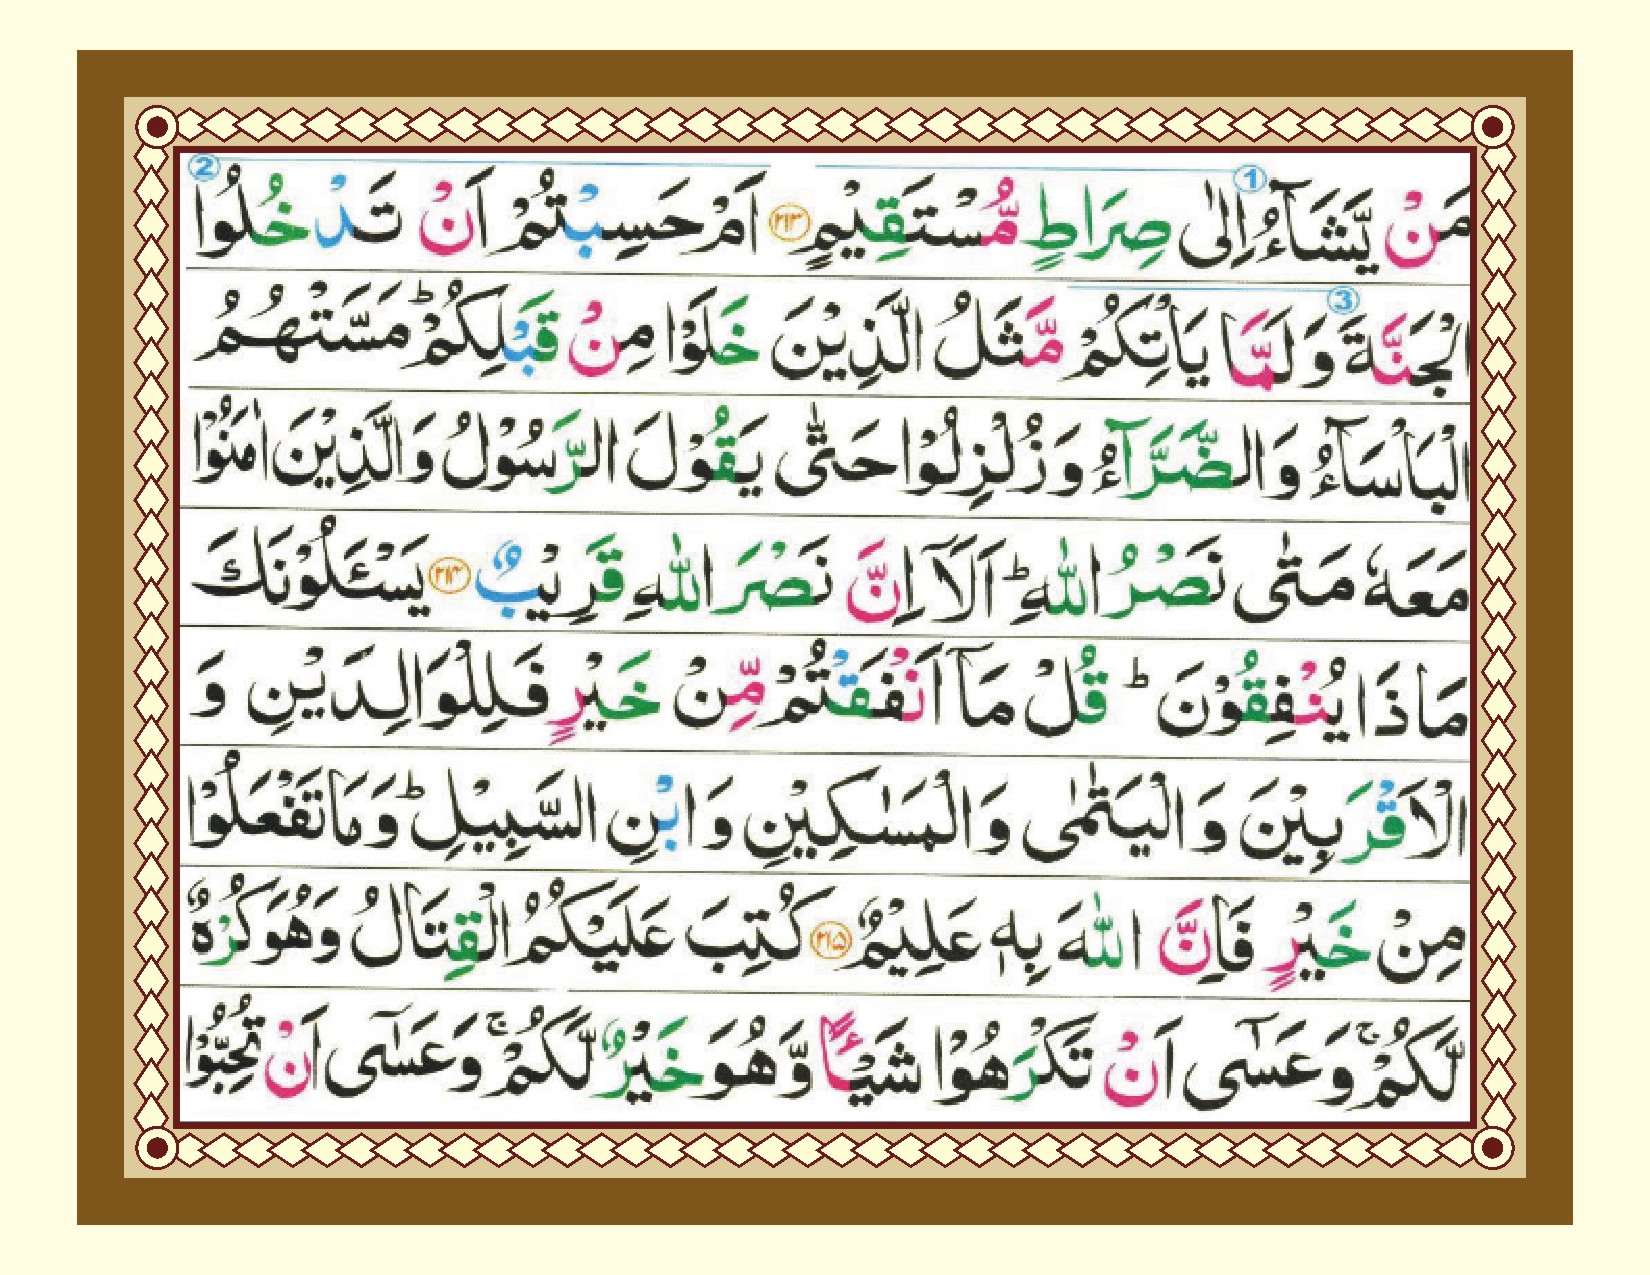 مَنْ يَّشَآءُ اِلٰى صِرَاطٍ مُّسْتَقِيْمٍ ۝۲۱۳ اَمْ حَسِبْتُمْ اَنْ تَدْخُلُوا
الْجَنَّةَ وَ لَمَّا يَاْتِكُمْ مَّثَلُ الَّذِيْنَ خَلَوْا مِنْ قَبْلِكُمْ ؕ مَسَّتْهُمُ
الْبَاْسَآءُ وَ الضَّرَّآءُ وَ زُلْزِلُوْا حَتّٰى يَقُوْلَ الرَّسُوْلُ وَ الَّذِيْنَ اٰمَنُوْا
مَعَهٗ مَتٰى نَصْرُ اللّٰهِ ؕ اَلَاۤ اِنَّ نَصْرَ اللّٰهِ قَرِيْبٌ ۝۲۱۴ يَسْـَٔلُوْنَكَ
مَا ذَا يُنْفِقُوْنَ ؕ قُلْ مَاۤ اَنْفَقْتُمْ مِّنْ خَيْرٍ فَلِلْوَالِدَيْنِ وَ
الْاَقْرَبِيْنَ وَ الْيَتٰمٰى وَ الْمَسٰكِيْنِ وَ ابْنِ السَّبِيْلِ ؕ وَ مَا تَفْعَلُوْا
مِنْ خَيْرٍ فَاِنَّ اللّٰهَ بِهٖ عَلِيْمٌ ۝۲۱۵ كُتِبَ عَلَيْكُمُ الْقِتَالُ وَ هُوَ كُرْهٌ
لَّكُمْ ۚ وَ عَسٰۤى اَنْ تَكْرَهُوْا شَيْـًٔا وَّ هُوَ خَيْرٌ لَّكُمْ ۚ وَ عَسٰۤى اَنْ تُحِبُّوْا